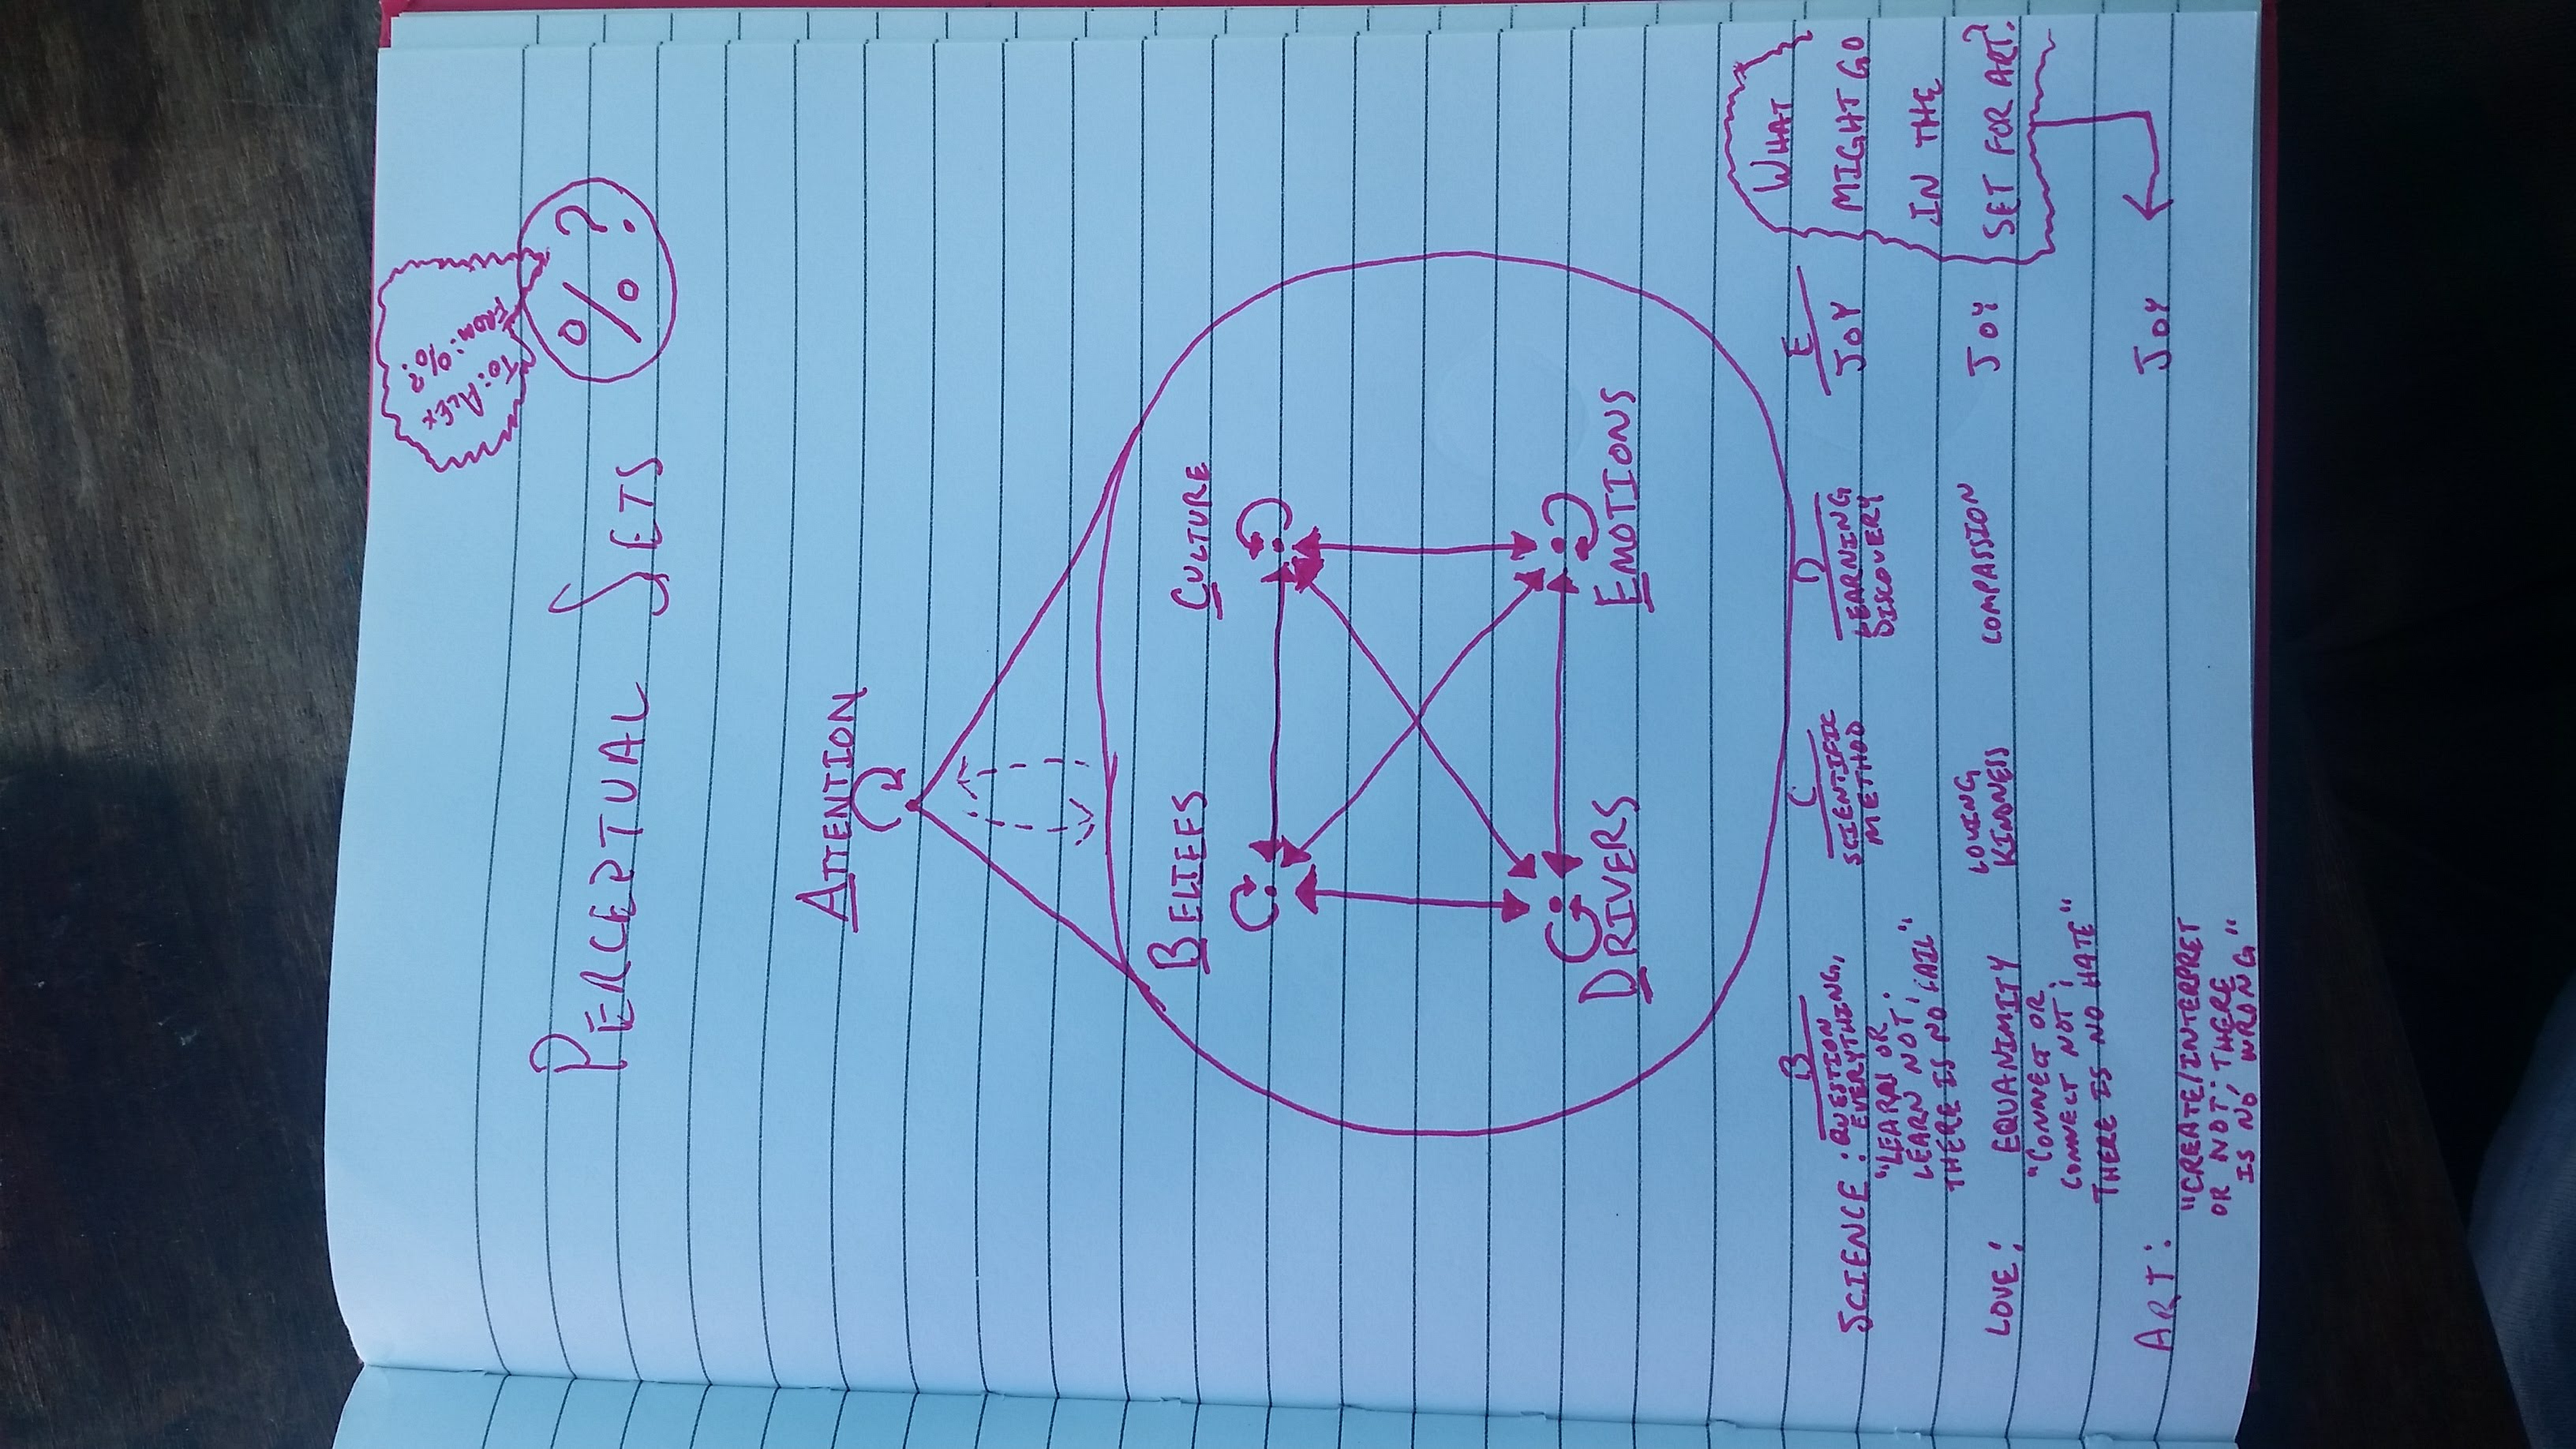 To: ALEX
FROM: %?
PERCEPTUAL SETS
% ?
ATTENTION
BELIEFS
CULTURE
DRIVERS
EMOTIONS
B
C
D
E
SCIENCE:
QUESTION
EVERYTHING,
"LEARN OR
LEARN NOT;
THERE IS NO FAIL"
SCIENTIFIC
METHOD
LEARNING
DISCOVERY
JOY
LOVE:
EQUANIMITY
"CONNECT OR
CONNECT NOT;
THERE IS NO HATE"
LOVING
KINDNESS
COMPASSION
JOY
ART:
"CREATE/INTERPRET
OR NOT; THERE
IS NO WRONG"
JOY
WHAT
MIGHT GO
IN THE
SET FOR ART?